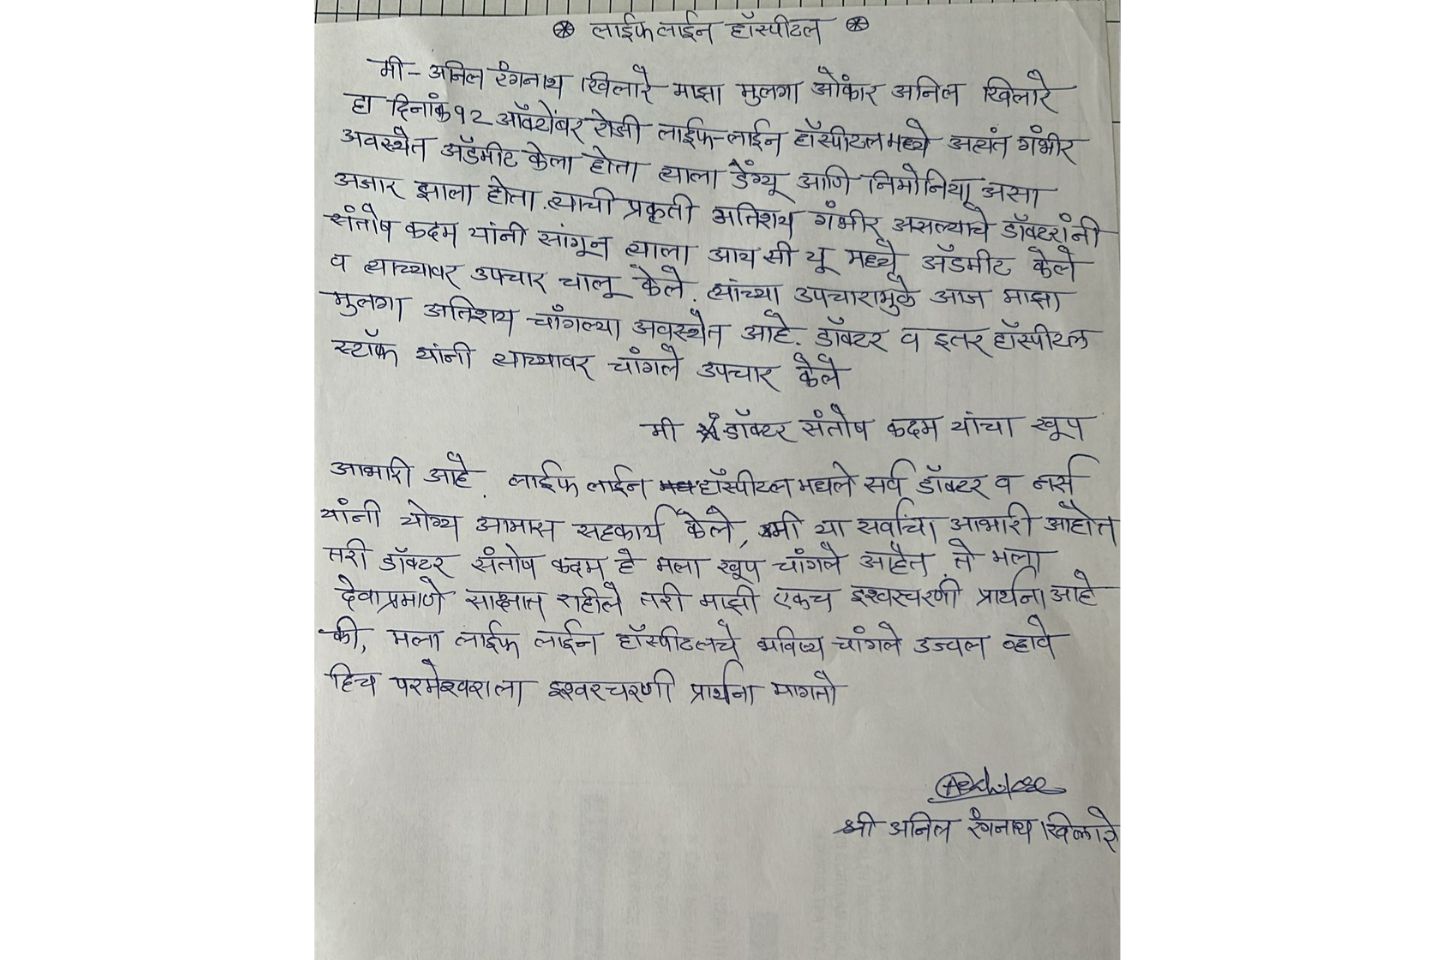 लाईफ लाईन हॉस्पीटल
मी - अनिल रंगनाथ खिलारे माझा मुलगा ओंकार अनिल खिलारे
हा दिनांक १२ ऑक्टोंबर रोजी लाईफ-लाईन हॉस्पीटलमध्ये अत्यंत गंभीर
अवस्थेत अ‍ॅडमीट केला होता त्याला डेंग्यू आणि निमोनिया असा
अजार झाला होता. त्याची प्रकृती अतिशय गंभीर असल्याचे डॉक्टरांनी
संतोष कदम यांनी सांगून त्याला आय सी यू मध्ये अ‍ॅडमीट केले
व त्याच्यावर उपचार चालू केले. त्यांच्या उपचारामुळे आज माझा
मुलगा अतिशय चांगल्या अवस्थेत आहे. डॉक्टर व इतर हॉस्पीटल
स्टॉफ यांनी त्याच्यावर चांगले उपचार केले
मी डॉक्टर संतोष कदम यांचा खूप
आभारी आहे. लाईफ लाईन हॉस्पीटल मधले सर्व डॉक्टर व नर्स
यांनी योग्य आमास सहकार्य केले, मी या सर्वांचा आभारी आहोत
तरी डॉक्टर संतोष कदम हे मला खूप चांगले आहेत ते मला
देवाप्रमाणे साक्षात राहीले तरी माझी एकच इश्वरचरणी प्रार्थना आहे
की, मला लाईफ लाईन हॉस्पीटलचे भविष्य चांगले उज्वल व्हावे
हिच परमेश्वराला इश्वरचरणी प्रार्थना मागतो
श्री अनिल रंगनाथ खिलारे